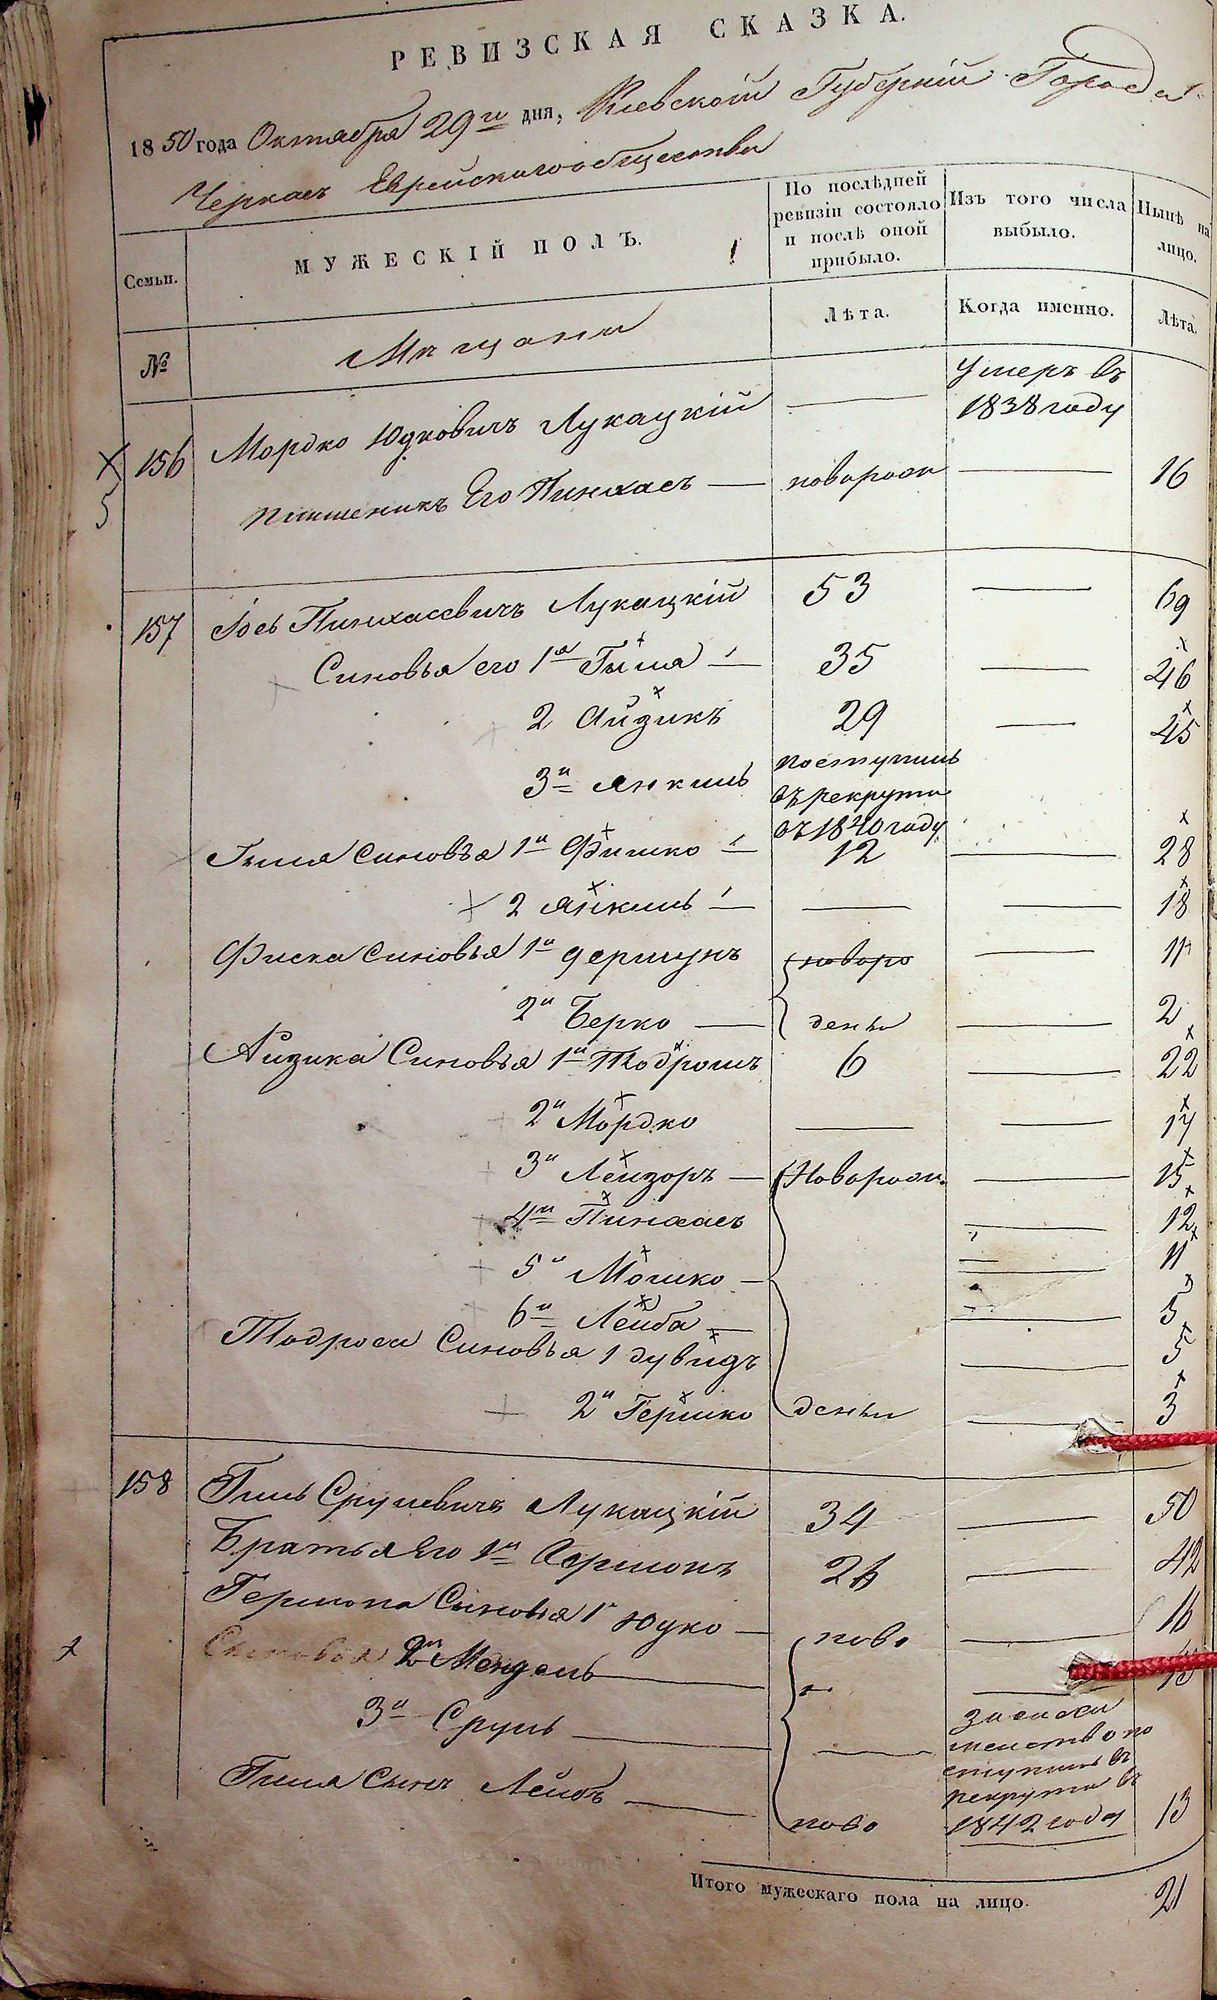 РЕВИЗСКАЯ СКАЗКА.
1850 года Октября 29го дня, Киевской Губерніи Города
Черкасъ Еврейскаго общества
Семьи. МУЖЕСКІЙ ПОЛЪ. По послѣдней ревизіи состояло и послѣ оной прибыло. Изъ того числа выбыло. Нынѣ на лицо.
№ Мѣщани Лѣта. Когда именно. Лѣта.
156 Мордко Юдковичъ Лукацкій — Умеръ въ 1838 году
5 племеникъ Его Пинхасъ — новорож — 16
157 Іось Пинхасевичъ Лукацкій 53 — 69
Синовья его 1й Гиля — 35 — 46
2 Айзикъ 29 — 45
3й Янкиль поступилъ въ рекруты въ 1840 году
Гиля синовья 1й Фишко — 12 — 28
2 Янкиль — — — 18
Фиска синовья 1й Гершунъ новоро — 11
2й Берко — дены — 2
Айзика Синовья 1й Тодросъ 6 — 22
2й Мордко — — 17
3й Лейзоръ — Новорож. — 15
4й Пинхасъ — 12
5й Мошко — — 11
6й Лейба — — 5
Тодроса Синовья 1 Дувидъ — 5
2й Гершко дены — 3
158 Гиль Срулевичъ Лукацкій 34 — 50
Братья Его 1й Гершонъ 26 — 42
Гершона Сыновья 1й Юдко — ново — 16
2й Мендель — —
3й Сруль — — поступилъ въ рекруты въ 1842 года
Гиля Сынъ Лейбъ — ново 13
Итого мужескаго пола на лицо. 21